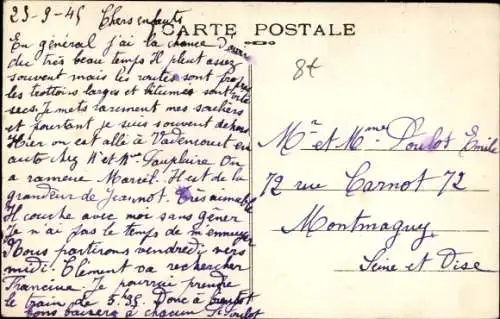 23-9-45 Chers enfants
CARTE POSTALE
En général j'ai la chance d'avoir
du très beau temps Il pleut assez
souvent mais les routes sont propres
les trottoirs larges et bitumés sont vite
secs. Je mets rarement mes souliers
et pourtant je suis souvent dehors
Hier on est allé à Vadencourt en
auto chez Mr et Mme Ou
a ramené Marcel. Il est de la
grandeur de Jeannot. Très aimable
Il couche avec moi sans gêner
Je n'ai pas le temps de m'ennuyer
Nous partirons vendredi vers
midi. Clément va rechercher
Francine Je pourrai prendre
le train de 5.35. Donc à bientôt
bons baisers à chacun Poulot
8f
Mr et Mme Poulot Emile
72 rue Carnot 72
Montmagny
Seine et Oise